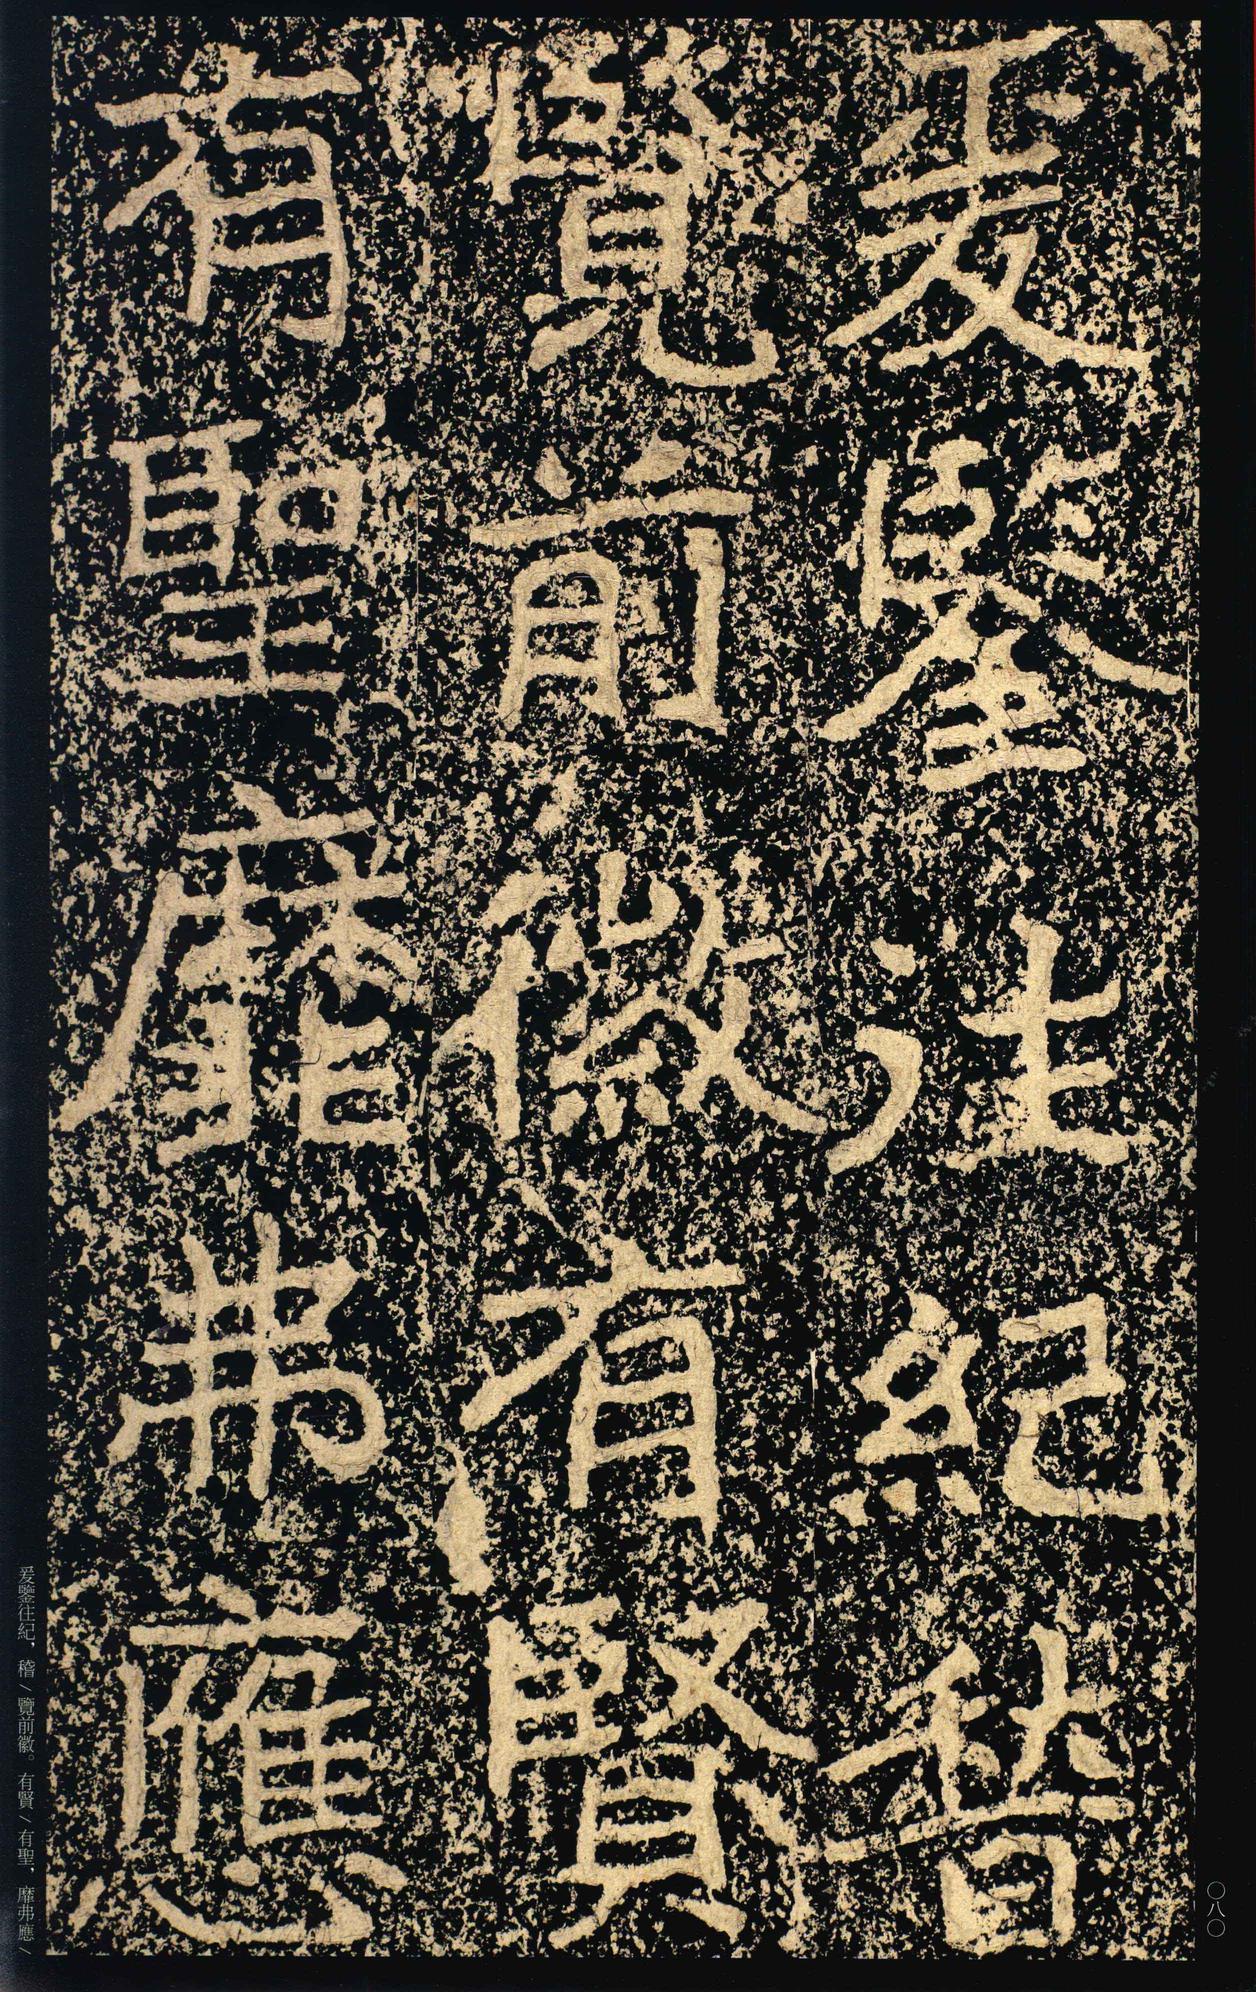 爰鑒往紀稽
覽前徽有賢
有聖靡弗應
爰鑒往紀，稽/覽前徽。有賢/有聖，靡弗應/
〇八〇